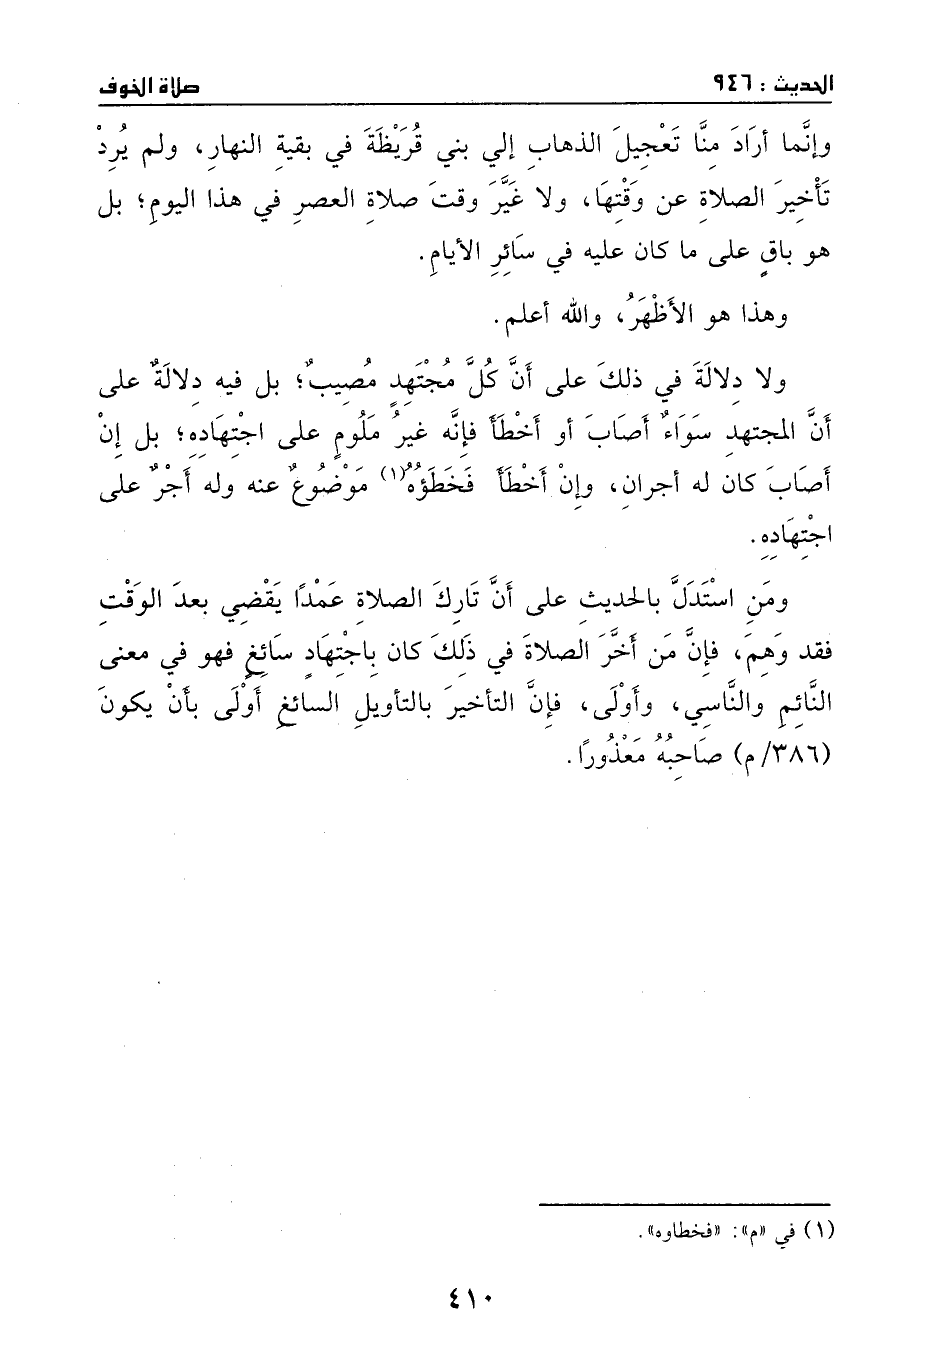 الحديث : ٩٤٦
صلاة الخوف
وإنَّما أرَادَ مِنَّا تَعْجِيلَ الذهابِ إلي بني قُرَيْظَةَ في بقيةِ النهارِ، ولم يُرِدْ
تَأْخِيرَ الصلاةِ عن وَقْتِهَا، ولا غَيَّرَ وقتَ صلاةِ العصرِ في هذا اليومِ؛ بل
هو باقٍ على ما كان عليه في سَائِرِ الأيامِ.
وهذا هو الأَظْهَرُ، والله أعلم.
ولا دِلالَةَ في ذلكَ على أَنَّ كُلَّ مُجْتَهِدٍ مُصِيبٌ؛ بل فيه دِلالَةٌ على
أَنَّ المجتهدِ سَوَاءٌ أصَابَ أو أَخْطَأَ فإنَّه غيرُ مَلُومٍ على اجتِهَادِهِ؛ بل إنْ
أصَابَ كان له أجرانِ، وإنْ أَخْطَأَ فَخَطَؤُهُ(١) مَوْضُوعٌ عنه وله أَجْرٌ على
اجْتِهَادِهِ.
ومَنِ اسْتَدَلَّ بالحديثِ على أَنَّ تَارِكَ الصلاةِ عَمْدًا يَقْضِي بعدَ الوَقْتِ
فقد وَهِمَ، فإنَّ مَن أَخَّرَ الصلاةَ في ذَلِكَ كان بِاجْتِهَادٍ سائِغٍ فهو في معنى
النَّائِمِ والنَّاسِي، وأَوْلَى، فإنَّ التأخيرَ بالتأويلِ السائغِ أَوْلَى بأَنْ يكونَ
(٣٨٦/ م) صَاحِبُهُ مَعْذُورًا.
(١) في «م»: «فخطاوه».
٤١٠